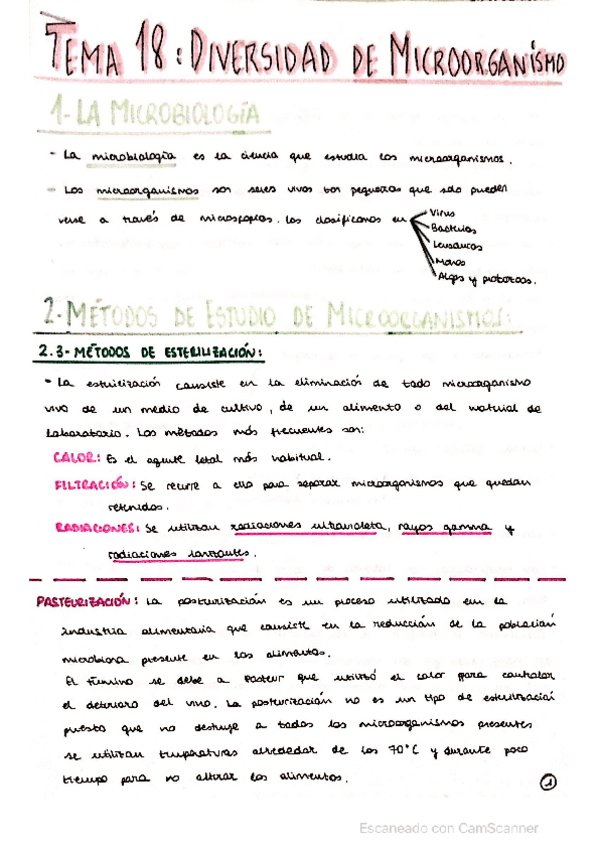 TEMA 18: DIVERSIDAD DE MICROORGANISMO
1- LA MICROBIOLOGÍA
- La microbiología es la ciencia que estudia los microorganismos.
- Los microorganismos son seres vivos tan pequeños que solo pueden
verse a través de microscopios. Los clasificamos en
Virus
Bacterias
Levaduras
Mohos
Algas y protozoos.
2- MÉTODOS DE ESTUDIO DE MICROORGANISMOS:
2.3- MÉTODOS DE ESTERILIZACIÓN:
- La esterilización consiste en la eliminación de todo microorganismo
vivo de un medio de cultivo, de un alimento o del material de
laboratorio. Los métodos más frecuentes son:
CALOR: Es el agente letal más habitual.
FILTRACIÓN: Se recurre a ello para separar microorganismos que quedan
retenidos.
RADIACIONES: Se utilizan radiaciones ultravioleta, rayos gamma y
radiaciones ionizantes.
PASTEURIZACIÓN: La pasteurización es un proceso utilizado em la
industria alimentaria que consiste en la reducción de la población
microbiana presente en los alimentos.
El término se debe a Pasteur que utilizó el calor para controlar
el deterioro del vino. La pasteurización no es un tipo de esterilización
puesto que no destruye a todos los microorganismos presentes
se utilizan temperaturas alrededor de los 70°C y durante poco
tiempo para no alterar los alimentos.
1
Escaneado con CamScanner